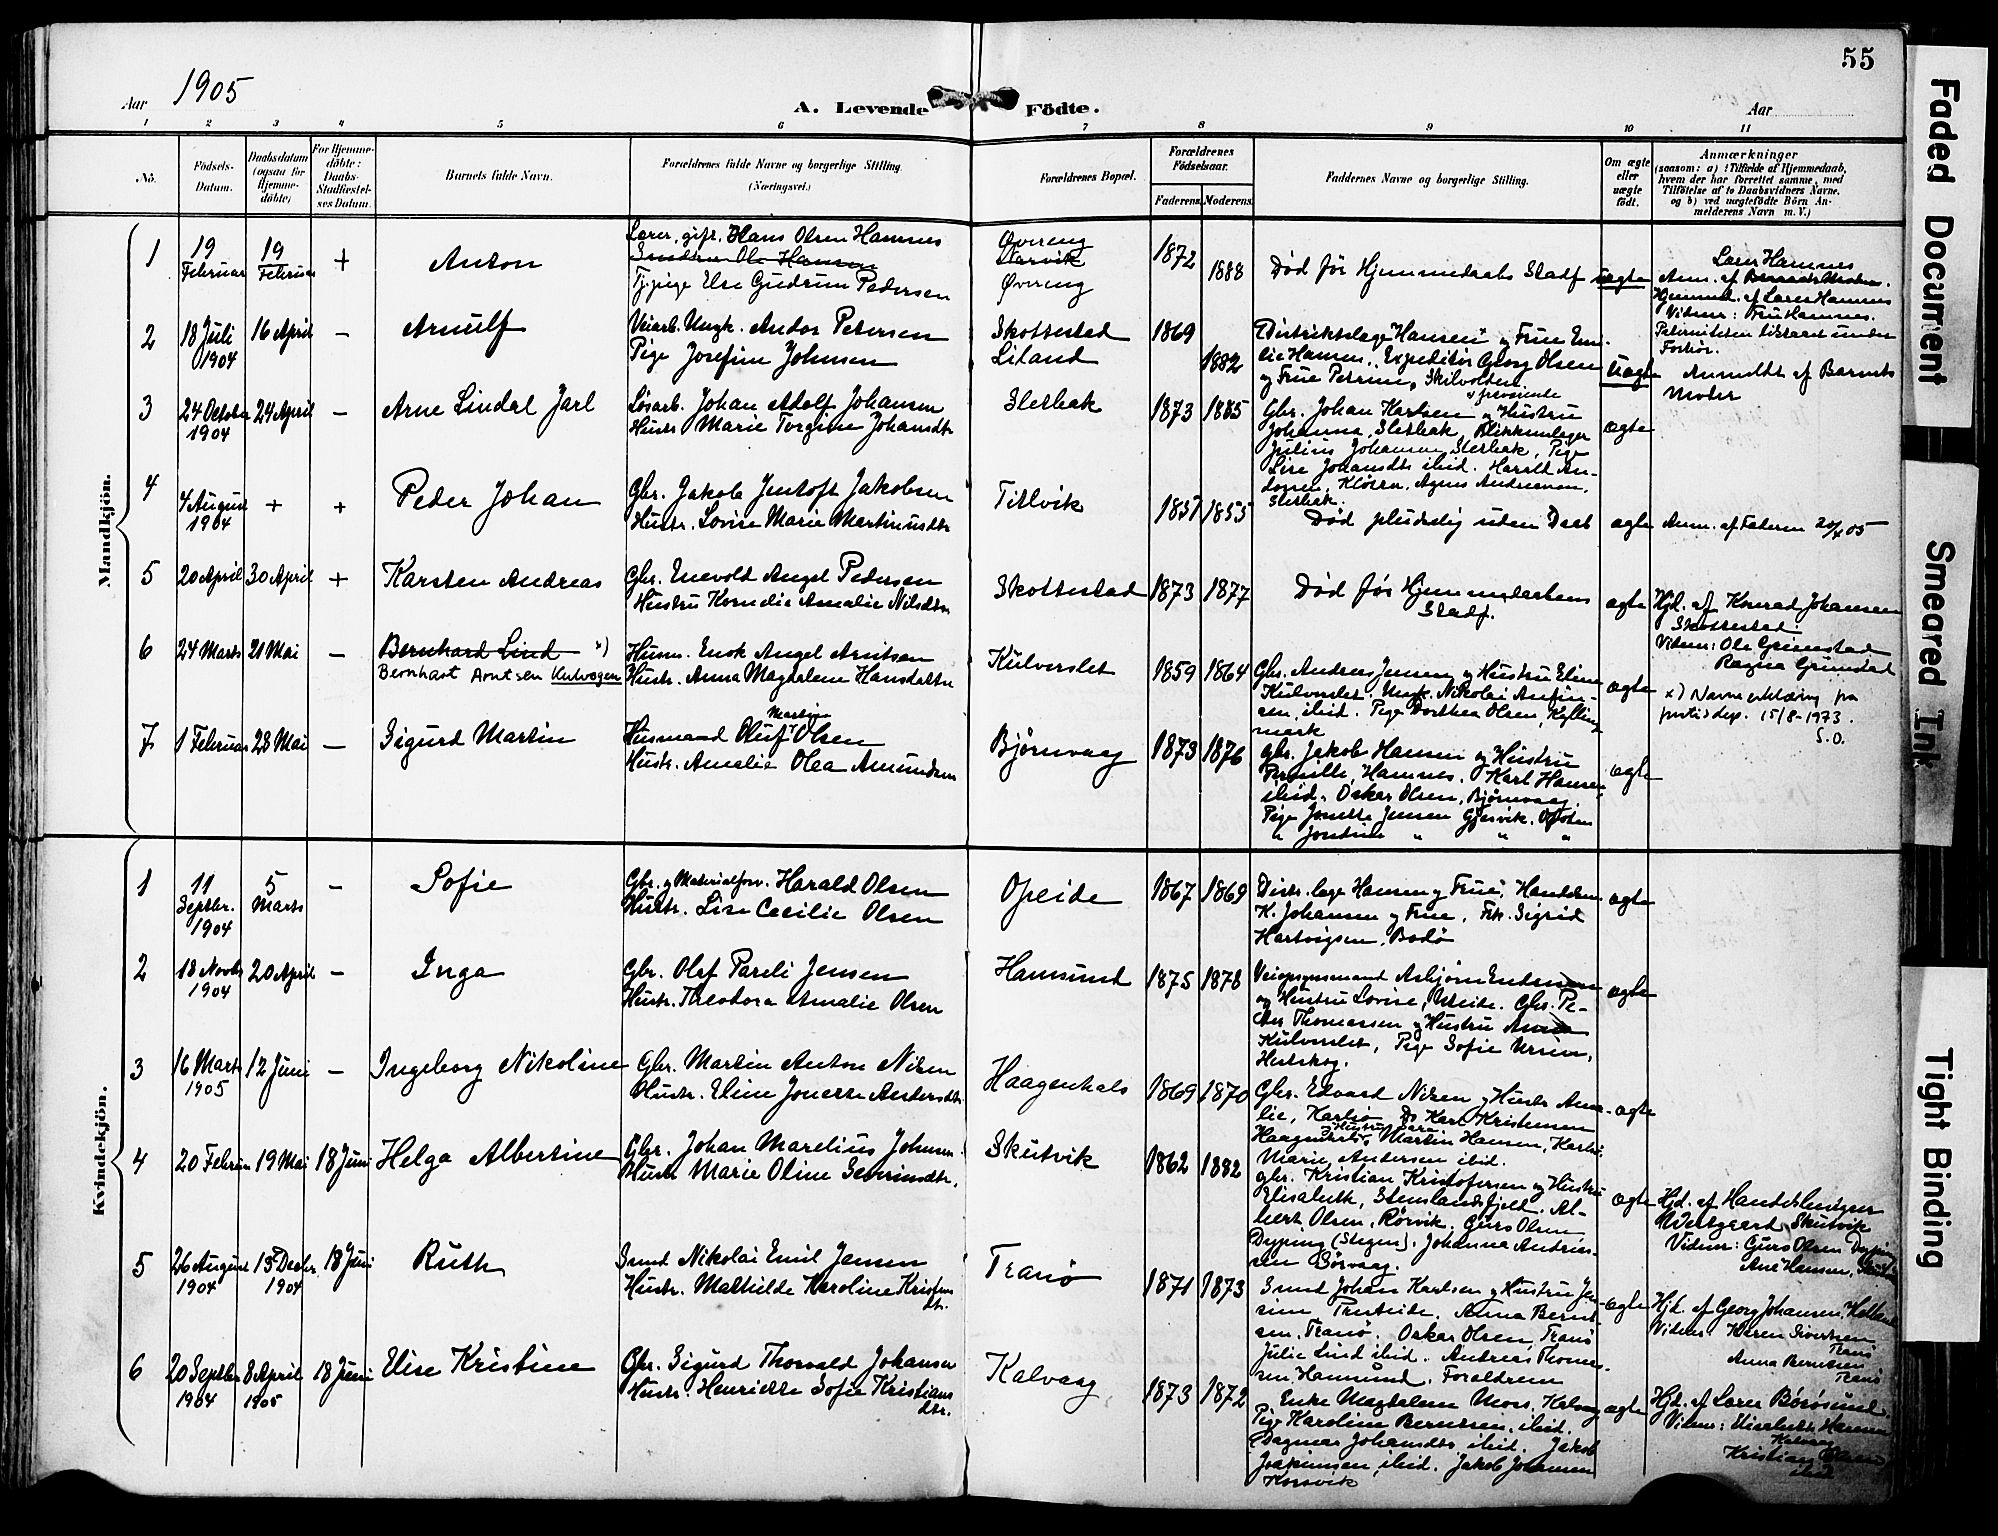 55
Aar 1905
A. Levende Fødte.
Aar
1 2 3 4 5 6 7 8 9 10 11
No.
Fødsels-
Datum.
Daabsdatum
(ogsaa for
Hjemme-
døbte)
For Hjemme-
døbte:
Daabs-
Stadfæstel-
ses Datum.
Barnets fulde Navn.
Forældrenes fulde Navne og borgerlige Stilling.
(Næringsvei.)
Forældrenes Bopæl.
Forældrenes
Fødselsaar.
Faderens Moderens
Faddernes Navne og borgerlige Stilling.
Om ægte
eller
uægte
født.
Anmærkninger
(saasom: a) i Tilfælde af Hjemmedaab,
hvem der har forrettet samme, med
Tilføielse af to Daabsvidners Navne,
og b) ved uægtefødte Børn An-
melderens Navn m. V.)
Mandkjøn.
1
19
Februar
19
Februar
+
Anton
Lærer, gift. Hans Olsen Hamnes
Tj.pige Else Gudrun Pedersen
Øvereng
Storvik
Øvereng
1872
1888
Død før Hjemmedaabs Stadf
uægte
Lærer Hamnes
Hjemmed. af Lærer Hamnes
Vidner: Fru Hamnes.
2
18 Juli
1904
16 April
–
Arnulf
Veiarb. Ungk. Andor Petersen
Pige Josefine Johnsen
Skottestad
Liland
1869
1882
Distriktslæge Hansen og Frue Emi-
lie Hansen, Expeditør Georg Olsen
og Frue Petrine, Skilvolden
uægte
Paterniteten tilstaaet under
Forhør.
Anmeldt af Barnets
Moder
3
24 Octobr
1904
24 April
–
Arne Lindal Jarl
Løsarb. Johan Adolf Johansen
Hustr. Marie Torgine Johansdtr
Sletbak
1873 1885
Gbr. Johan Karlsen og Hustru
Johanna, Sletbak, Blikkenslager
Julius Johansen Sletbak, Pige
Lise Johansdtr ibid. Harald An-
Sletbak.
ægte
4
4 August
1904
+
+
Peder Johan
Gbr. Jakob Jentoft Jakobsen
Hustr. Lovise Marie Martinusdtr
Tillvik
1857 1855
Død pludselig uden Daab
ægte
Anm. af Faderen 20/4 05
5
20 April
30 April
+
Karsten Andreas
Gbr. Enevold Angel Pedersen
Hustru Kornelia Amalie Nilsdtr
Skottestad
1873 1877
Død før Hjemmedaabens
Stadf.
ægte
Hjd. af Konrad Johansen
Skottestad.
Vidner: Ole Grimstad
Ragna Grimstad
6
24 Marts
21 Mai
–
Bernhard Lind x)
Bernhart Arntsen Kulvogen
Husm. Enok Angel Arntsen
Hustr. Anna Magdalene Hansdatter
Kulverslet
1859 1864
Gbr. Andreas Jensen og Hustru Eline
Kulverslet. Ungk. Nikolai Anfin-
sen, ibid. Pige Dorthea Olsen, Kylling
mark
ægte
x) Navneerklæring fra
justisdep. 15/8-1973.
S.O.
7
1 Februar
28 Mai
–
Sigurd Martin
Husmand Oluf Martin Olsen
Hustr. Amalie Olea Amundsen
Bjørnvaag
1873 1876
Gbr. Jakob Hansen og Hustru
Pernille, Hamnes. Karl Hansen
ibid. Oskar Olsen, Bjørnvaag.
Pige Jonette Jensen Gjervik. Ofoten
" Jostine " " "
ægte
Kvindekjøn.
1
11
Septbr.
1904
5
Marts
–
Sofie
Gbr. og Materialforv. Harald Olsen
Hustr. Lise Cecilie Olsen
Opeide
1867 1869
Distr.læge Hansen og Frue, Handelsm.
K. Johansen og Frue, Frk. Sigrid
Hartvigsen, Bodø
ægte
2
18 Novbr
1904
20 April
–
Inga
Gbr. Olaf Pareli Jensen
Hustr. Theodora Amalie Olsen
Hamsund
1875 1878
Veiopsynsmand Asbjørn Endresen
og Hustru Lovise, Ulseide. Gbr. Pe-
der Thomassen og Hustru Anna
Kulverslet, Pige Sofie Ursin,
ægte
3
16 Marts
1905
12 Juni
–
Ingeborg Nikoline
Gbr. Martin Anton Nilsen
Hustr. Eline Jonette Andersdtr.
Haagenhals
1869 1870
Gbr. Edvard Nilsen og Hustr Ama-
lie, Karlsø Do Karl Kristensen
Haagenhals, Hustru Sara Martin Hansen, Karlsø
Marie Andersen ibid.
ægte
4
20 Februar
19 Mai
18 Juni
Helga Albertine
Gbr. Johan Marelius Johnsen
Hustr Marie Oline Severinsdtr.
Skutvik
1862 1882
Gbr. Kristian Kristofersen og Hustru
Elisabeth, Stemlandsfjeld. Al-
bert Olsen, Rørvik. Gurs Olsen
Dyping (Stegen). Johanna Andrias-
sen Børvaag.
ægte
Hjd. af Handelsbestyrer
Westgaard Skutvik
Vidner: Gurs Olsen Dyping
Ane Hansen,
5
26 August
1904
13 Decbr.
1904
18 Juni
Ruth
Smed Nikolai Emil Jensen
Hustr. Mathilde Karoline Kristens
dtr.
Tranø
1871 1873
Smed Johan Karlsen og Hustru Jen-
sine Presteide, Anna Bernt-
sen, Tranø. Oskar Olsen, Tranø
Julie Lind ibid. Andreas Thomas-
sen Hamsund, Forældrene
ægte
Hjd. af Georg Johansen,
Vidner: Karen Sivertsen
Tranø
Anna Berntsen
Tranø
6
20 Septbr
1904
8 April
1905
18 Juni
Else Kristine
Gbr. Sigurd Thorvald Johansen
Hustr. Henriette Sofie Kristians
dtr.
Kalvaag
1873 1872
Enke Magdalena Mons. Kalvaag
Pige Karoline Berntsen, ibid.
Dagmar Johansdtr ibid. Jakob
Joakimsen ibid. Jakob Johansen
Korsvik
ægte
Hjd. af Lærer Børøsund.
Vidner: Elisabeth Hansen
Kalvaag
Kristian
ibid
Faded Document
Smeared Ink
Tight Binding